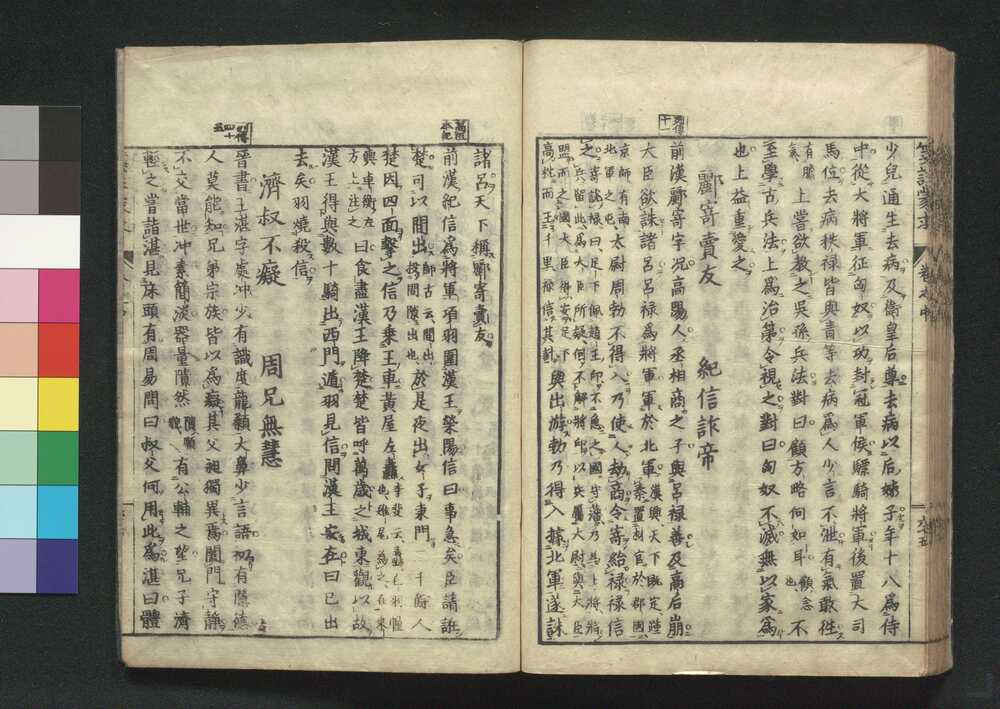 少兒通生去病及衛皇后尊去病以后姊子年十八爲侍
中從大將軍征匈奴以功封冠軍侯驃騎將軍後置大司
馬位去病秩祿皆與青等去病爲人少言不泄有氣敢徃
上嘗欲教之吳孫兵法對曰顧方略何如耳 顧念也 不
至學古兵法上爲治第令視之對曰匈奴不滅無以家爲
也上益重愛之
酈寄賣友 紀信詐帝
列傳十一
前漢酈寄字况高陽人丞相商之子與呂祿善及高后崩
大臣欲誅諸呂呂祿爲將軍軍於北軍
太尉周勃不得入乃使人劫商令寄紿祿祿信
之
與出游勃乃得入據北軍遂誅
諸呂天下稱酈寄賣友
高祖本紀
前漢紀信爲將軍項羽圍漢王滎陽信曰事急矣臣請誑
楚可以間出 師古云間出投間隙出也 於是夜出女子東門二千餘人
楚因四面擊之信乃乗王車黃屋左纛
曰食盡漢王降楚楚皆呼萬歲之城東觀以故
漢王得與數十騎出西門遁羽見信問漢王安在曰已出
去矣羽燒殺信
濟叔不癡 周兄無慧
列傳四十五
晉書王湛字處冲少有識度龍顙大鼻少言語初有隱德
人莫能知兄弟宗族皆以爲癡其父昶獨異焉闔門守靜
不交當世冲素簡淡器量隤然 有公輔之望兄子濟
輕之嘗詣湛見床頭有周易問曰叔父何用此爲湛曰體